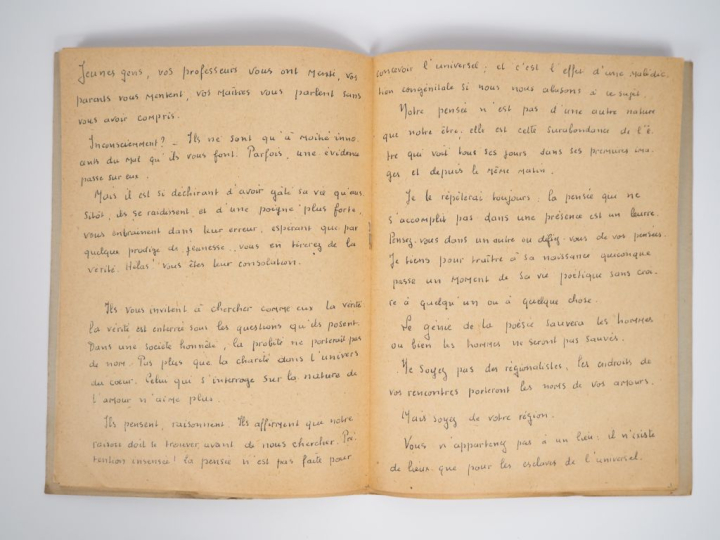 Jeunes gens, vos professeurs vous ont menti, vos
parents vous mentent, vos maîtres vous parlent sans
vous avoir compris.
Inconsciemment? - Ils ne sont qu'à moitié inno-
cents du mal qu'ils vous font. Parfois, une évidence
passe sur eux.
Mais il est si déchirant d'avoir gâté sa vie qu'aus-
sitôt, ils se raidissent et d'une poigne plus forte,
vous entraînent dans leur erreur, espérant que par
quelque prodige de jeunesse, vous en tirerez de la
vérité. Hélas! vous êtes leur consolution.
Ils vous invitent à chercher comme eux la vérité
la vérité est enterrée sous les questions qu'ils posent.
Dans une société honnête, la probité ne porterait pas
de nom. Pas plus que la charité dans l'univers
du cœur. Celui qui s'interroge sur la nature de
l'amour n'aime plus.
Ils pensent, raisonnent. Ils affirment que notre
raison doit le trouver avant de nous chercher. Pré-
tention insensée! la pensée n'est pas faite pour
concevoir l'universel; et c'est l'effet d'une malédic-
tion congénitale si nous nous abusons à ce sujet.
Notre pensée n'est pas d'une autre nature
que notre être; elle est cette surabondance de l'ê-
tre qui vont tous ses jours dans ses premières ima-
ges et depuis le même matin.
Je le répéterai toujours, la pensée qui ne
s'accomplit pas dans une présence est un leurre.
Pensez-vous dans un autre ou défiez-vous de vos pensées.
Je tiens pour traître à sa naissance quiconque
passe un moment de sa vie poétique sans croi-
re à quelqu'un ou à quelque chose.
Le génie de la poésie sauvera les hommes
ou bien les hommes ne seront pas sauvés.
Ne soyez pas des régionalistes, les endroits de
vos rencontres porteront les noms de vos amours.
Mais soyez de votre région.
Vous n'appartenez pas à un lieu: il n'existe
de lieux que pour les esclaves de l'universel.